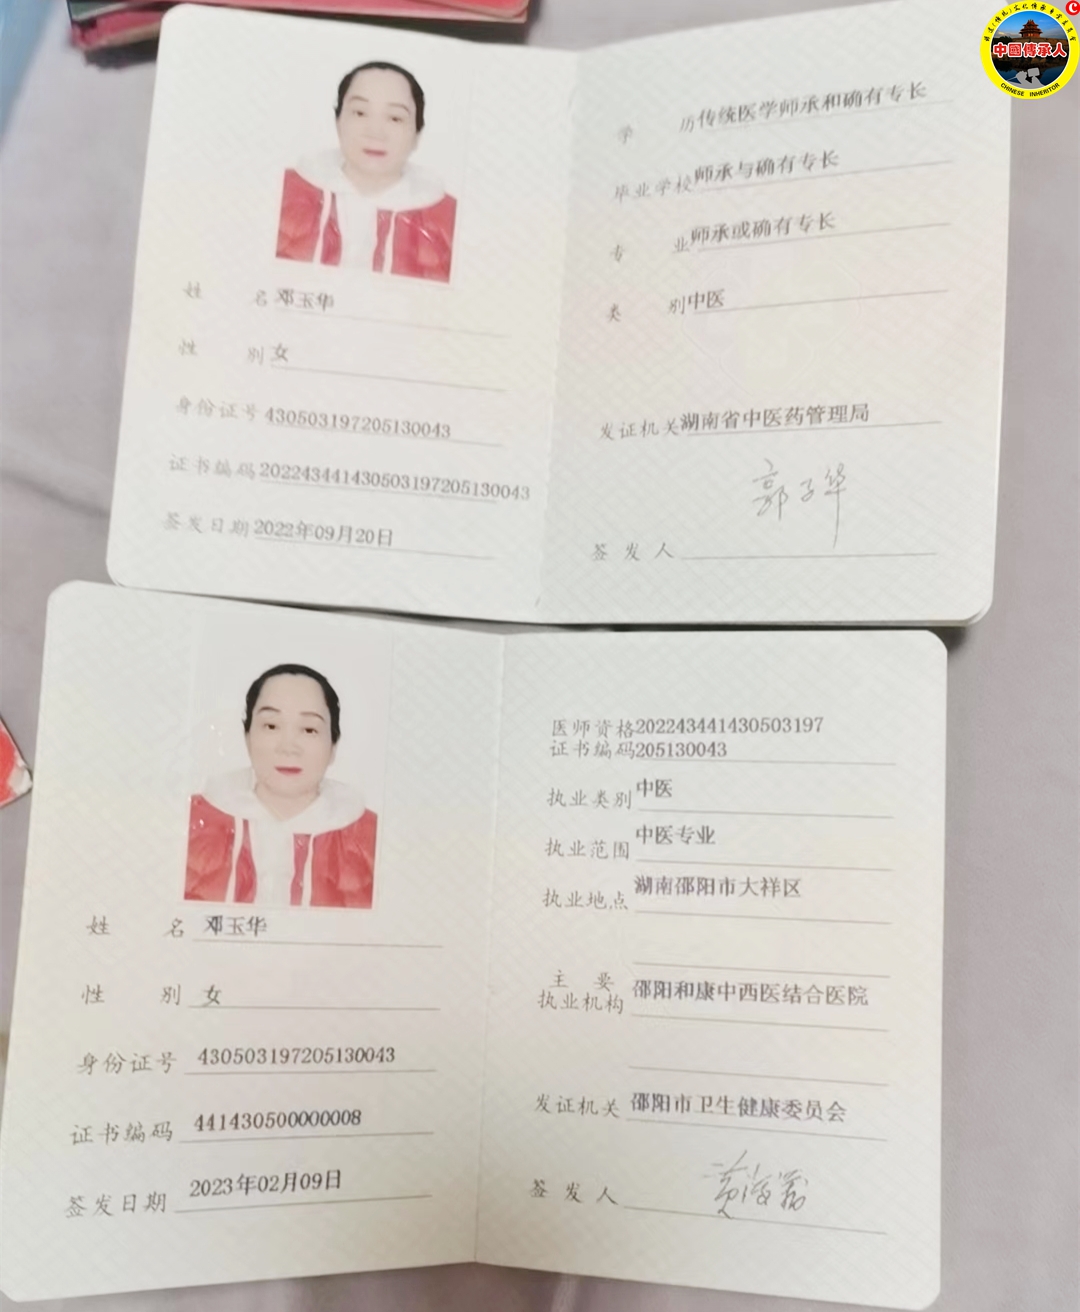 中國傳承人
CHINESE INHERITOR
姓 名 邓玉华
性 别 女
身份证号 430503197205130043
证书编码 202243441430503197205130043
签发日期 2022年09月20日
学 历 传统医学师承和确有专长
毕业学校 师承与确有专长
专 业 师承或确有专长
类 别 中医
发证机关 湖南省中医药管理局
郭子华
签 发 人
姓 名 邓玉华
性 别 女
身份证号 430503197205130043
证书编码 441430500000008
签发日期 2023年02月09日
医师资格 202243441430503197
证书编码 205130043
执业类别 中医
执业范围 中医专业
执业地点 湖南邵阳市大祥区
主 要
执业机构 邵阳和康中西医结合医院
发证机关 邵阳市卫生健康委员会
签 发 人